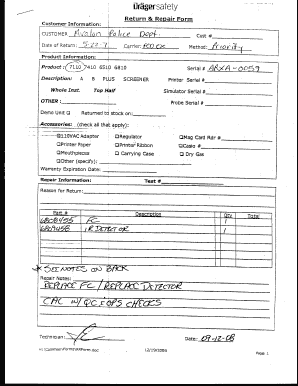 drägersafety
Return & Repair Form
Customer Information:
CUSTOMER Avalon Police Dept. Cust #
Date of Return: 5-22-7 Carrier: FEDEX Method: Priority
Product Information:
Product: 7110 7410 6510 6810 Serial # ARXA-0059
Description: A B PLUS SCREENER Printer Serial #
Whole Inst. Top Half Simulator Serial #
OTHER: Probe Serial #
Demo Unit Returned to stock on:
Accessories: (check all that apply):
110VAC Adapter Regulator Mag Card Rdr #
Printer Paper Printer Ribbon Casio #
Mouthpieces Carrying Case Dry Gas
Other (specify):
Warranty Expiration Date:
Repair Information: Test #
Reason for Return:
Part # Description Qty Total
FC 1
IR DETECTOR 1
* SEE NOTES ON BACK
Repair Notes:
REPLACE FC / REPLACE DETECTOR
CAL W/ QC & OPS CHECKS
Technician: Date: 09-12-08
12/19/2006 Page 1